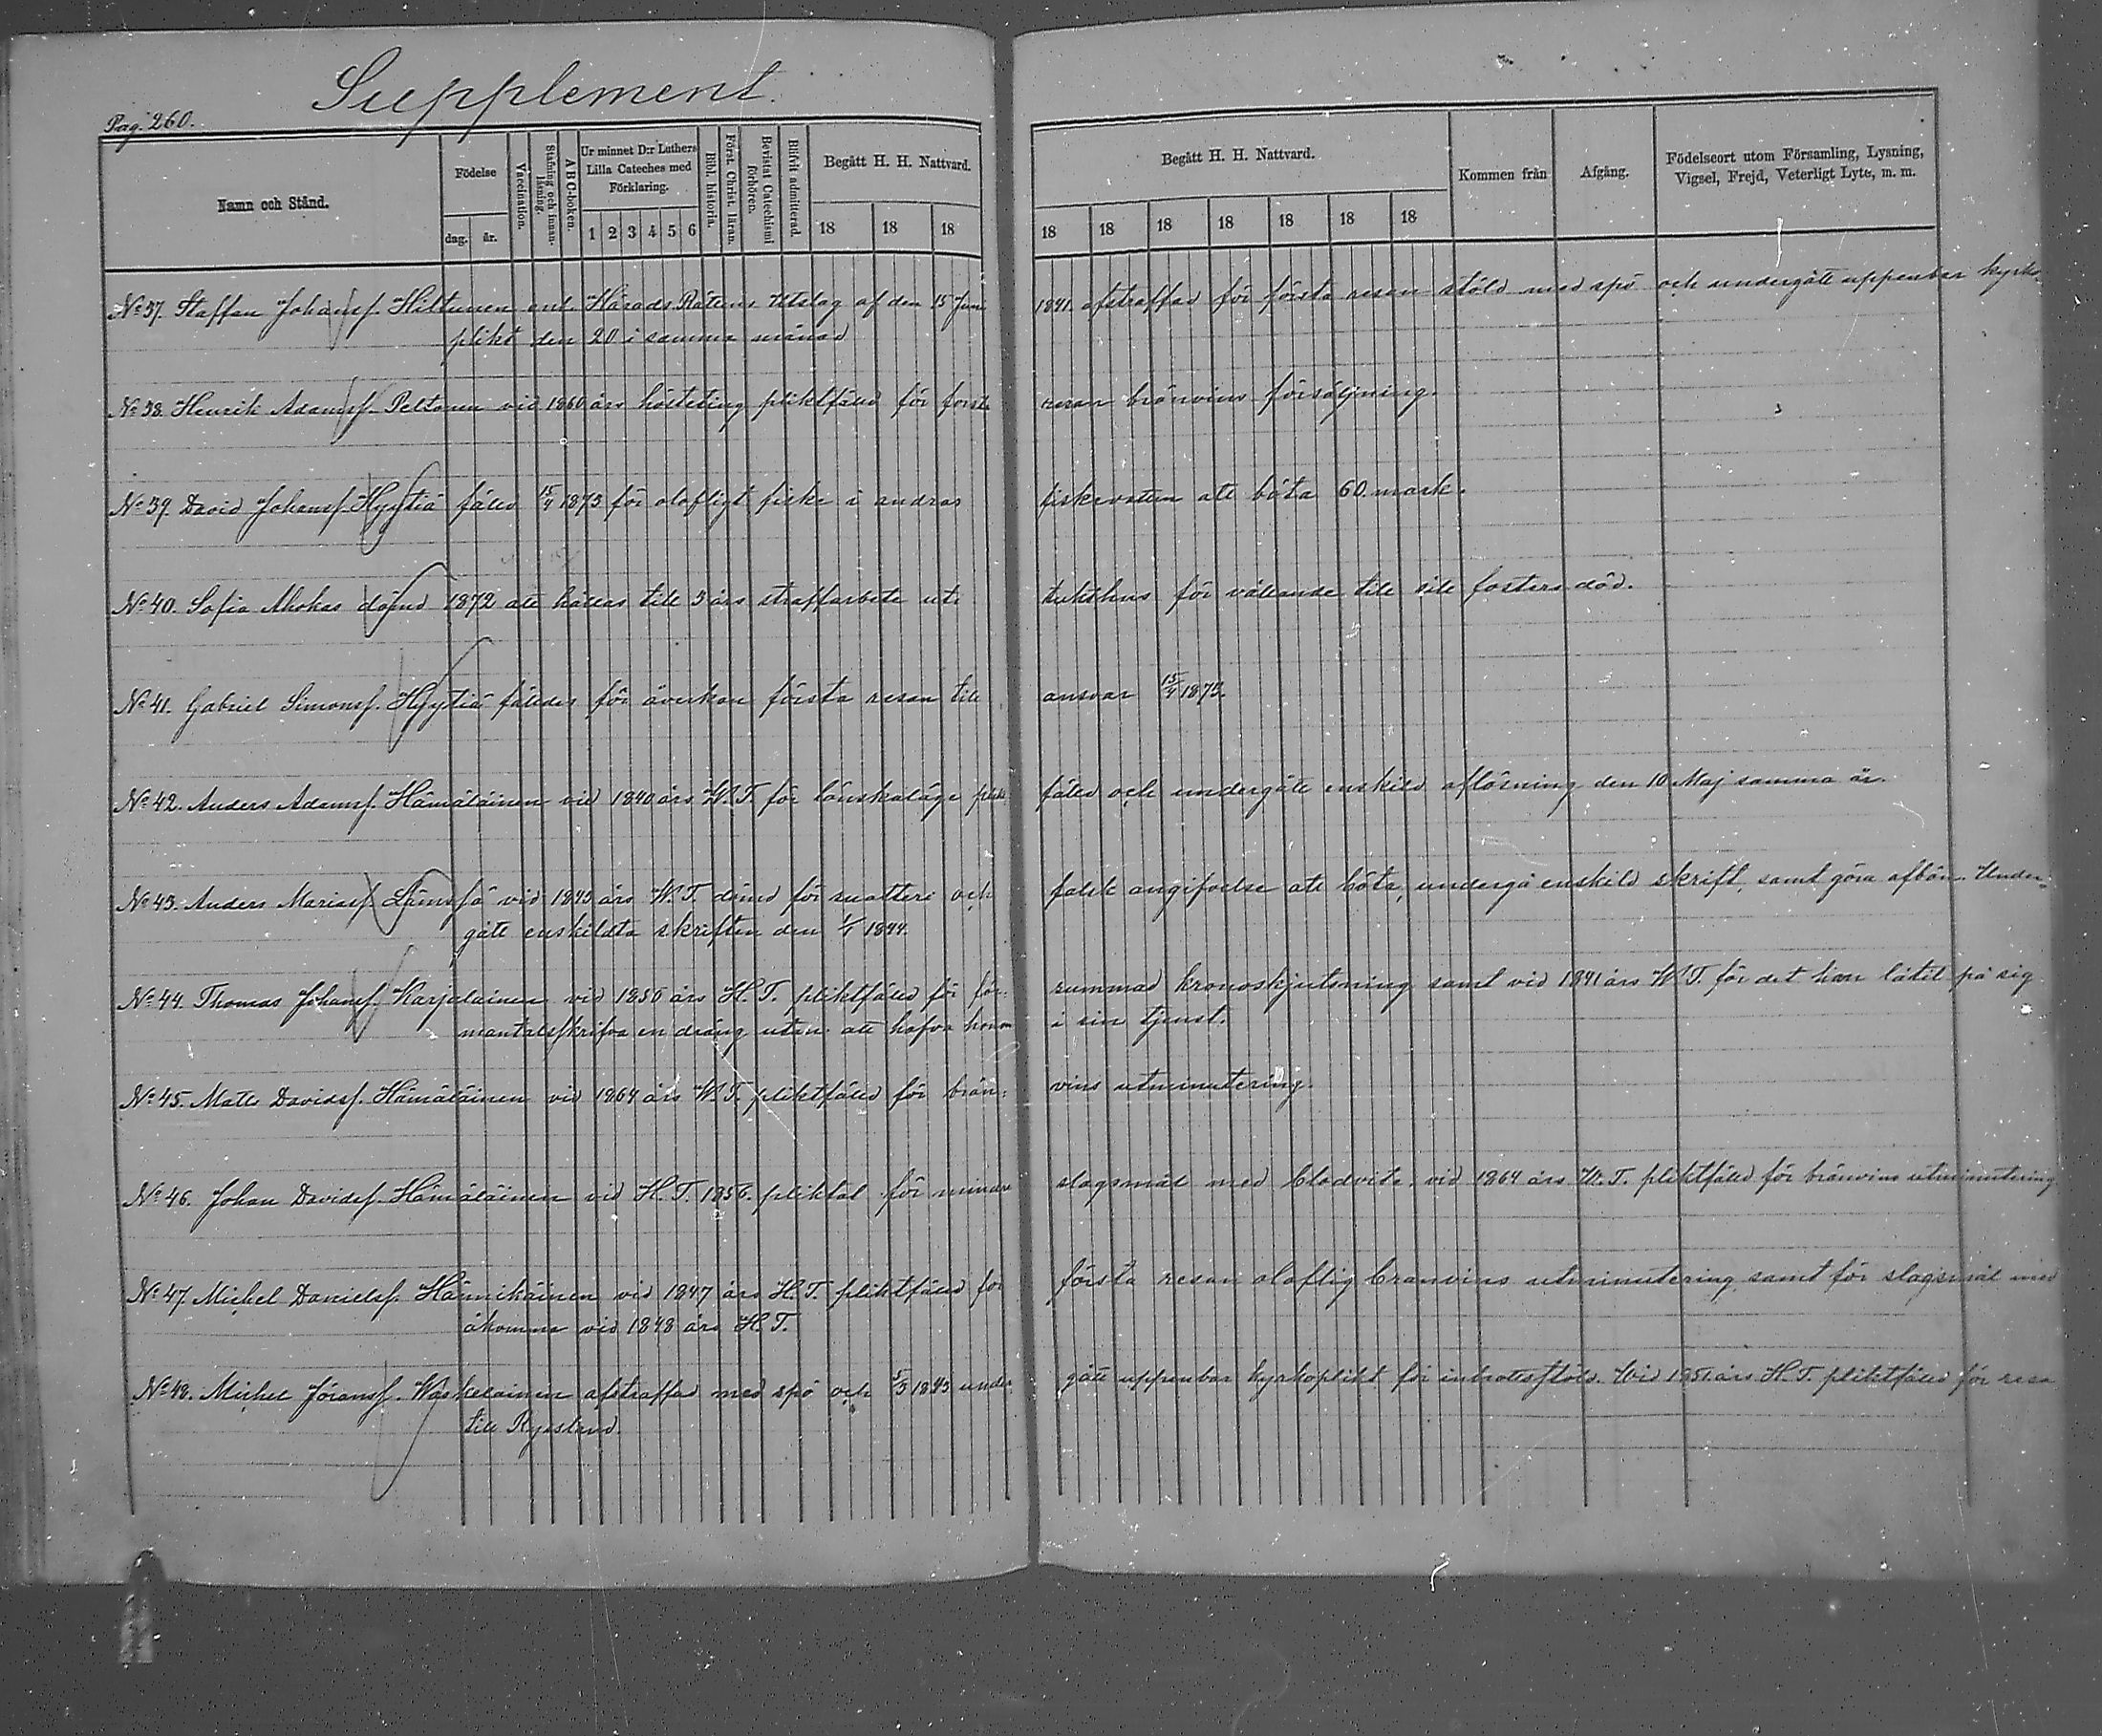 Supplement.
Pag. 260.
Namn och Stånd.
Födelse
dag. år.
Vaccination.
Stafning och innanläsning.
ABC-boken.
Ur minnet D:r Luthers Lilla Cateches med Förklaring.
1 2 3 4 5 6
Bibl. historia.
Först. Christ. läran.
Bevistat Catechismi förhören.
Blifvit admitterad.
Begått H. H. Nattvard.
18 18 18
Begått H. H. Nattvard.
18 18 18 18 18 18 18
Kommen från
Afgång.
Födelseort utom Församling, Lysning, Vigsel, Frejd, Veterligt Lyte, m. m.
No 37. Staffan Johansf. Hiltunen enl. Härads Rättens Utslag af den 15 Juni 1841. afstraffad för första resan stöld med spö och undergått uppenbar kyrko-
plikt den 20 i samma månad
No 38. Henrik Adamsf. Peltonen vid 1860 års höstting pliktfälld för första resan bränvins försäljning.
No 39. David Johansf. Hyytiä fälld 15/4 1873 för olofligt fiske i andras fiskevatten att böta 60 mark.
No 40. Sofia Ahokas dömd 1872 att hållas till 3 års straffarbete uti tukthus för vållande till sitt fosters död.
No 41. Gabriel Simonsf. Hyytiä fälldes för åverkan första resan till ansvar 15/4 1873.
No 42. Anders Adamsf. Hämäläinen vid 1840 års W. T. för lönskaläge plikt fälld och undergått enskild aflösning den 10 Maj samma år.
No 43. Anders Mariasf. Lämssä vid 1843 års W. T. dömd för snatteri och falsk angifvelse att böta, undergå enskild skrift, samt göra afbön. Under-
gått enskildta skriften den 1/1 1844.
No 44. Thomas Johansf. Karjalainen vid 1836 års H. T. pliktfälld för för- summad kronoskjutsning samt vid 1841 års W. T. för det han låtit på sig
mantalsskrifva en dräng utan att hafva honom i sin tjenst.
No 45. Matts Davidsf. Hämäläinen vid 1864 års W. T. pliktfälld för brän- vins utminutering.
No 46. Johan Davidsf. Hämäläinen vid H. T. 1856. pliktat för mindre slagsmål med blodvite, vid 1864 års W. T. pliktfälld för bränvins utminutering
No 47. Michel Danielsf. Hännikäinen vid 1847 års H. T. pliktfälld för första resan oloflig bränvins utminutering samt för slagsmål med
åkomma vid 1848 års H. T.
No 48. Michel Jöransf. Waskelainen afstraffad med spö och 5/3 1843 under- gått uppenbar kyrkoplikt för inbrottsstöld. Wid 1851 års H. T. pliktfälld för resa
till Ryssland.